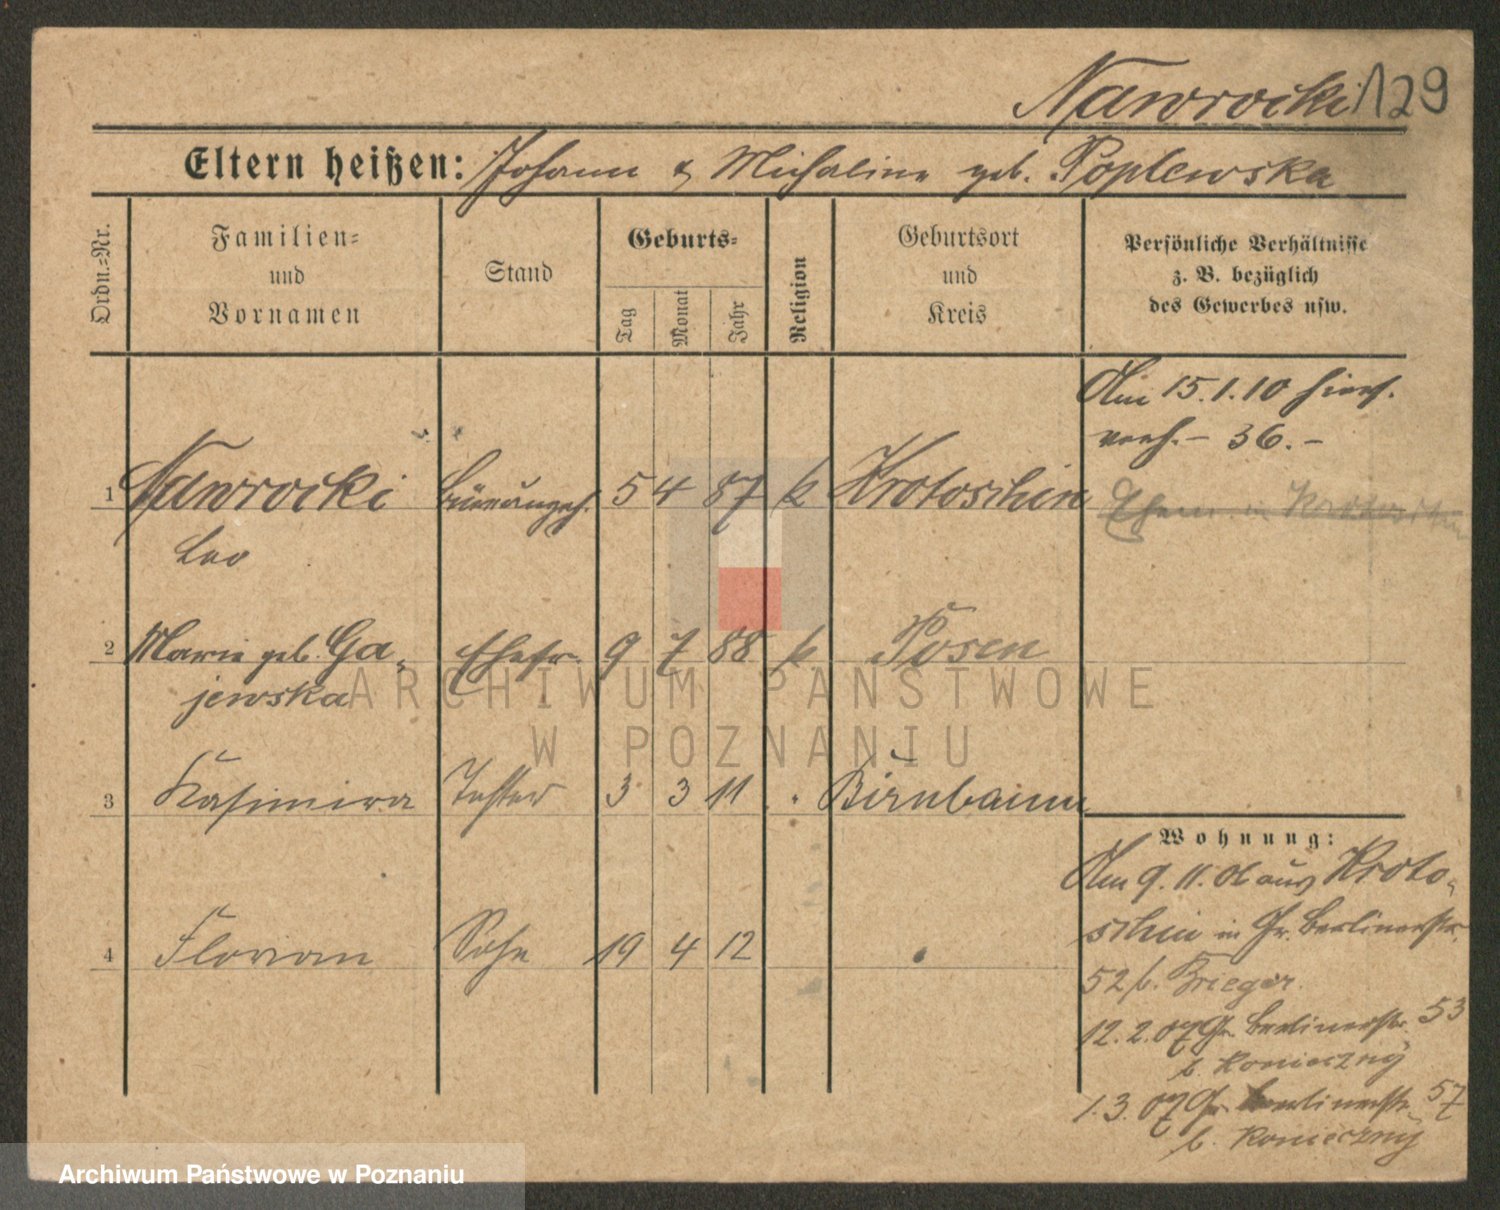 Nawrocki 129
Eltern heißen: Johann & Michaline geb. Poplewska
Ordn.-Nr.
Familien-
und
Vornamen
Stand
Geburts-
Tag
Monat
Jahr
Religion
Geburtsort
und
Kreis
Persönliche Verhältnisse
z. B. bezüglich
des Gewerbes usw.
Am 15.1.10 hier
verh. – 36. –
1 Nawrocki Büroangeh. 5 4 87 k Krotoschin
Leo
Ehem. in Krotoschin
2 Marie geb. Ga- Ehefr. 9 7 88 k Posen
jewska
3 Kasimira Tochter 3 3 11 " Birnbaum
4 Florian Sohn 19 4 12
Wohnung:
Am 9.11.06 aus Kroto-
schin in Gr. Berlinerstr.
52 b. Krieger.
12.2.07 Gr. Berlinerstr. 53
b. Konieczny
1.3.07 Gr. Berlinerstr. 57
b. Konieczny
ARCHIWUM PAŃSTWOWE
W POZNANIU
Archiwum Państwowe w Poznaniu